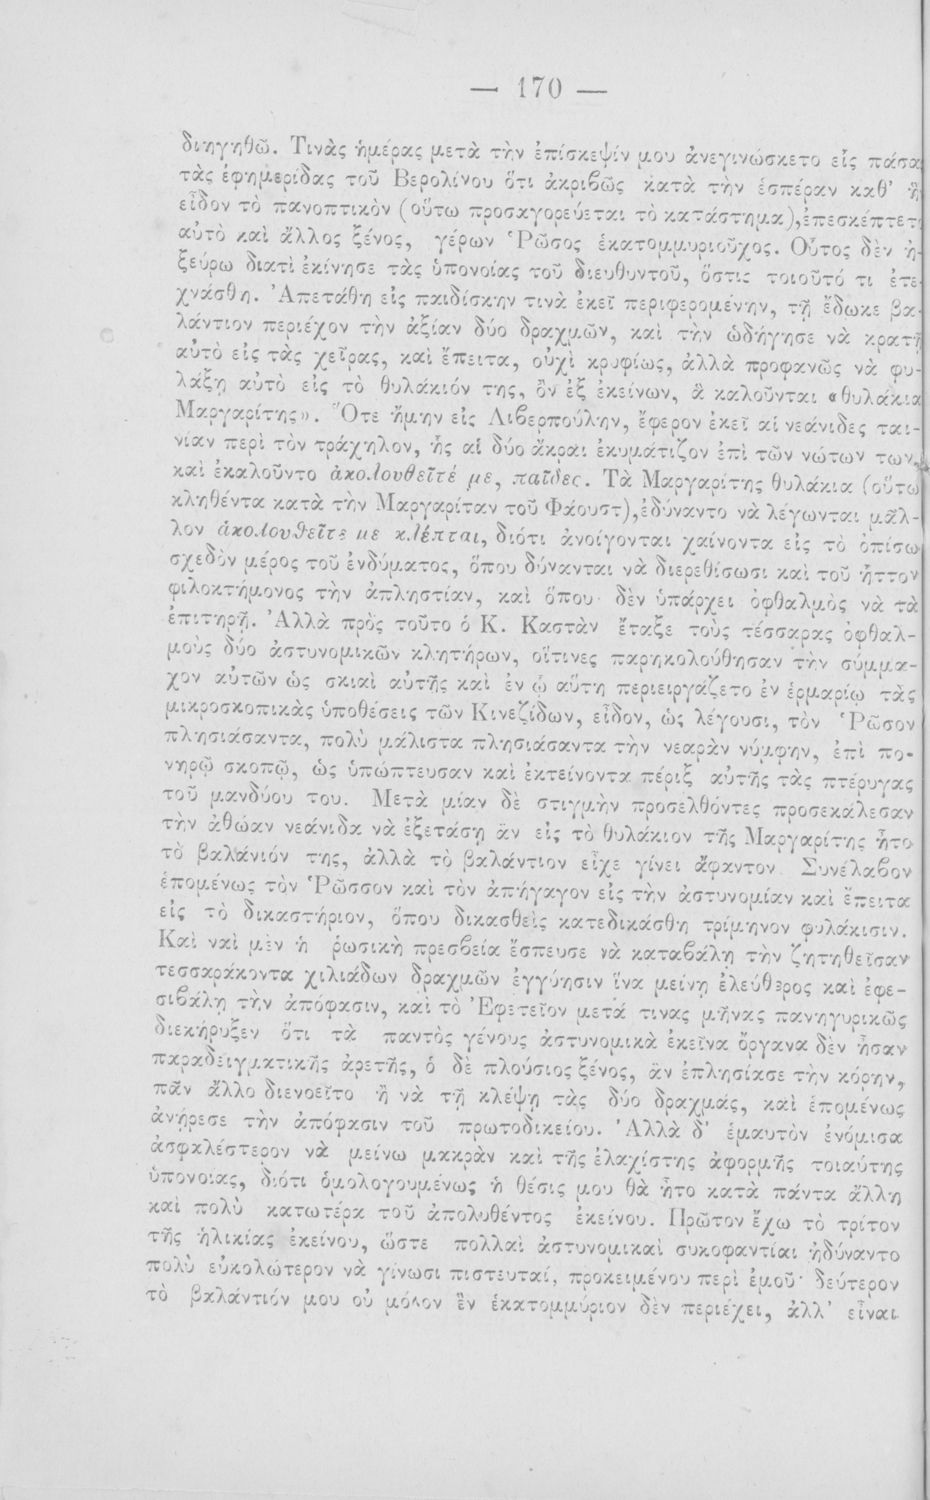 — 170 —
διηγηθῶ. Τινὰς ἡμέρας μετὰ τὴν ἐπίσκεψίν μου ἀνεγινώσκετο εἰς πάσα
τὰς ἐφημερίδας τοῦ Βερολίνου ὅτι ἀκριβῶς κατὰ τὴν ἑσπέραν καθ' ἣ
εἶδον τὸ πανοπτικὸν (οὕτω προσαγορεύεται τὸ κατάστημα),ἐπεσκέπτετ
αὐτὸ καὶ ἄλλος ξένος, γέρων Ῥῶσος ἑκατομμυριοῦχος. Οὗτος δὲν ἠ-
ξεύρω διατὶ ἐκίνησε τὰς ὑπονοίας τοῦ διευθυντοῦ, ὅστις τοιοῦτό τι ἐτε-
χνάσθη. Ἀπετάθη εἰς παιδίσκην τινὰ ἐκεῖ περιφερομένην, τῇ ἔδωκε βα-
λάντιον περιέχον τὴν ἀξίαν δύο δραχμῶν, καὶ τὴν ὡδήγησε νὰ κρατῇ
αὐτὸ εἰς τὰς χεῖρας, καὶ ἔπειτα, οὐχὶ κρυφίως, ἀλλὰ προφανῶς νὰ φυ-
λάξῃ αὐτὸ εἰς τὸ θυλάκιόν της, ὂν ἐξ ἐκείνων, ἃ καλοῦνται «θυλάκια
Μαργαρίτης». Ὅτε ἤμην εἰς Λιβερπούλην, ἔφερον ἐκεῖ αἱ νεάνιδες ται-
νίαν περὶ τὸν τράχηλον, ἧς αἱ δύο ἄκραι ἐκυμάτιζον ἐπὶ τῶν νώτων των,
καὶ ἐκαλοῦντο ἀκολουθεῖτέ με, παῖδες. Τὰ Μαργαρίτης θυλάκια (οὕτω
κληθέντα κατὰ τὴν Μαργαρίταν τοῦ Φάουστ),ἐδύναντο νὰ λέγωνται μᾶλ-
λον ἀκολουθεῖτε με κλέπται, διότι ἀνοίγονται χαίνοντα εἰς τὸ ὀπίσω
σχεδὸν μέρος τοῦ ἐνδύματος, ὅπου δύνανται νὰ διερεθίσωσι καὶ τοῦ ἧττον
φιλοκτήμονος τὴν ἀπληστίαν, καὶ ὅπου δὲν ὑπάρχει ὀφθαλμὸς νὰ τὰ
ἐπιτηρῇ. Ἀλλὰ πρὸς τοῦτο ὁ Κ. Καστὰν ἔταξε τοὺς τέσσαρας ὀφθαλ-
μοὺς δύο ἀστυνομικῶν κλητήρων, οἵτινες παρηκολούθησαν τὴν σύμμα-
χον αὐτῶν ὡς σκιαὶ αὐτῆς καὶ ἐν ᾧ αὕτη περιειργάζετο ἐν ἑρμαρίῳ τὰς
μικροσκοπικὰς ὑποθέσεις τῶν Κινεζίδων, εἶδον, ὡς λέγουσι, τὸν Ῥῶσον
πλησιάσαντα, πολὺ μάλιστα πλησιάσαντα τὴν νεαρὰν νύμφην, ἐπὶ πο-
νηρῷ σκοπῷ, ὡς ὑπώπτευσαν καὶ ἐκτείνοντα πέριξ αὐτῆς τὰς πτέρυγας
τοῦ μανδύου του. Μετὰ μίαν δὲ στιγμὴν προσελθόντες προσεκάλεσαν
τὴν ἀθώαν νεάνιδα νὰ ἐξετάσῃ ἂν εἰς τὸ θυλάκιον τῆς Μαργαρίτης ἦτο
τὸ βαλάνιόν της, ἀλλὰ τὸ βαλάντιον εἶχε γίνει ἄφαντον. Συνέλαβον
ἑπομένως τὸν Ῥῶσσον καὶ τὸν ἀπήγαγον εἰς τὴν ἀστυνομίαν καὶ ἔπειτα
εἰς τὸ δικαστήριον, ὅπου δικασθεὶς κατεδικάσθη τρίμηνον φυλάκισιν.
Καὶ ναὶ μὲν ἡ ῥωσικὴ πρεσβεία ἔσπευσε νὰ καταβάλῃ τὴν ζητηθεῖσαν
τεσσαράκοντα χιλιάδων δραχμῶν ἐγγύησιν ἵνα μείνῃ ἐλεύθερος καὶ ἐφε-
σιβάλῃ τὴν ἀπόφασιν, καὶ τὸ Ἐφετεῖον μετά τινας μῆνας πανηγυρικῶς
διεκήρυξεν ὅτι τὰ παντὸς γένους ἀστυνομικὰ ἐκεῖνα ὄργανα δὲν ἦσαν
παραδειγματικῆς ἀρετῆς, ὁ δὲ πλούσιος ξένος, ἂν ἐπλησίασε τὴν κόρην,
πᾶν ἄλλο διενοεῖτο ἢ νὰ τῇ κλέψῃ τὰς δύο δραχμάς, καὶ ἑπομένως
ἀνῄρεσε τὴν ἀπόφασιν τοῦ πρωτοδικείου. Ἀλλὰ δ' ἐμαυτὸν ἐνόμισα
ἀσφαλέστερον νὰ μείνω μακρὰν καὶ τῆς ἐλαχίστης ἀφορμῆς τοιαύτης
ὑπονοίας, διότι ὁμολογουμένως ἡ θέσις μου θὰ ἦτο κατὰ πάντα ἄλλη
καὶ πολὺ κατωτέρα τοῦ ἀπολυθέντος ἐκείνου. Πρῶτον ἔχω τὸ τρίτον
τῆς ἡλικίας ἐκείνου, ὥστε πολλαὶ ἀστυνομικαὶ συκοφαντίαι ἠδύναντο
πολὺ εὐκολώτερον νὰ γίνωσι πιστευταί, προκειμένου περὶ ἐμοῦ· δεύτερον
τὸ βαλάντιόν μου οὐ μόνον ἓν ἑκατομμύριον δὲν περιέχει, ἀλλ' εἶναι